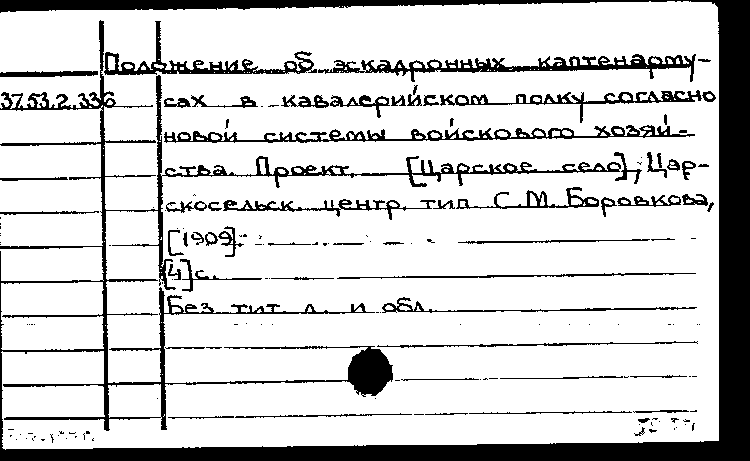 Положение об эскадронных каптенарму-
37.53.2.336 сах в кавалерийском полку согласно
новой системы войскового хозяй-
ства. Проект. [Царское село], Цар-
скосельск. центр. тип. С.М. Боровкова,
[1909].
[4] с.
Без тит. л. и обл.